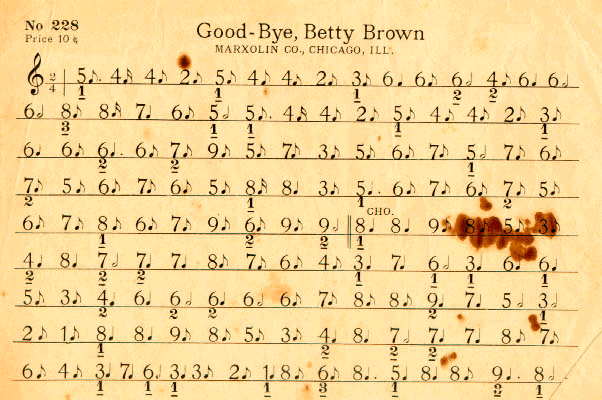 No 228
Price 10¢
Good-Bye, Betty Brown
MARXOLIN CO., CHICAGO, ILL.
2 5 4 4 2 5 4 4 2 3 6 6 6 4 6 6
4 1 1 1 2 2
6 8 8 7 6 5 5 4 4 2 5 4 4 2 3
3 1 1 1 1
6 6 6 6 7 9 5 7 3 5 6 7 5 7 6
2 2 1
7 5 6 7 6 5 8 8 3 5 6 7 6 7 5
2 1 1 2
CHO.
6 7 8 6 7 9 6 9 9 8 8 9 8 5 3
1 2 2 1
4 8 7 7 7 8 7 6 4 3 7 6 3 6 6
2 2 2 1 1 1 1
5 3 4 6 6 6 6 7 8 8 9 7 5 3
2 2 2 2 1
2 1 8 8 9 8 5 3 4 8 7 7 7 8 7
1 2 2 2
6 4 3 7 6 3 3 2 1 8 6 8 5 8 8 9 8
1 1 1 1 3 1 2 1